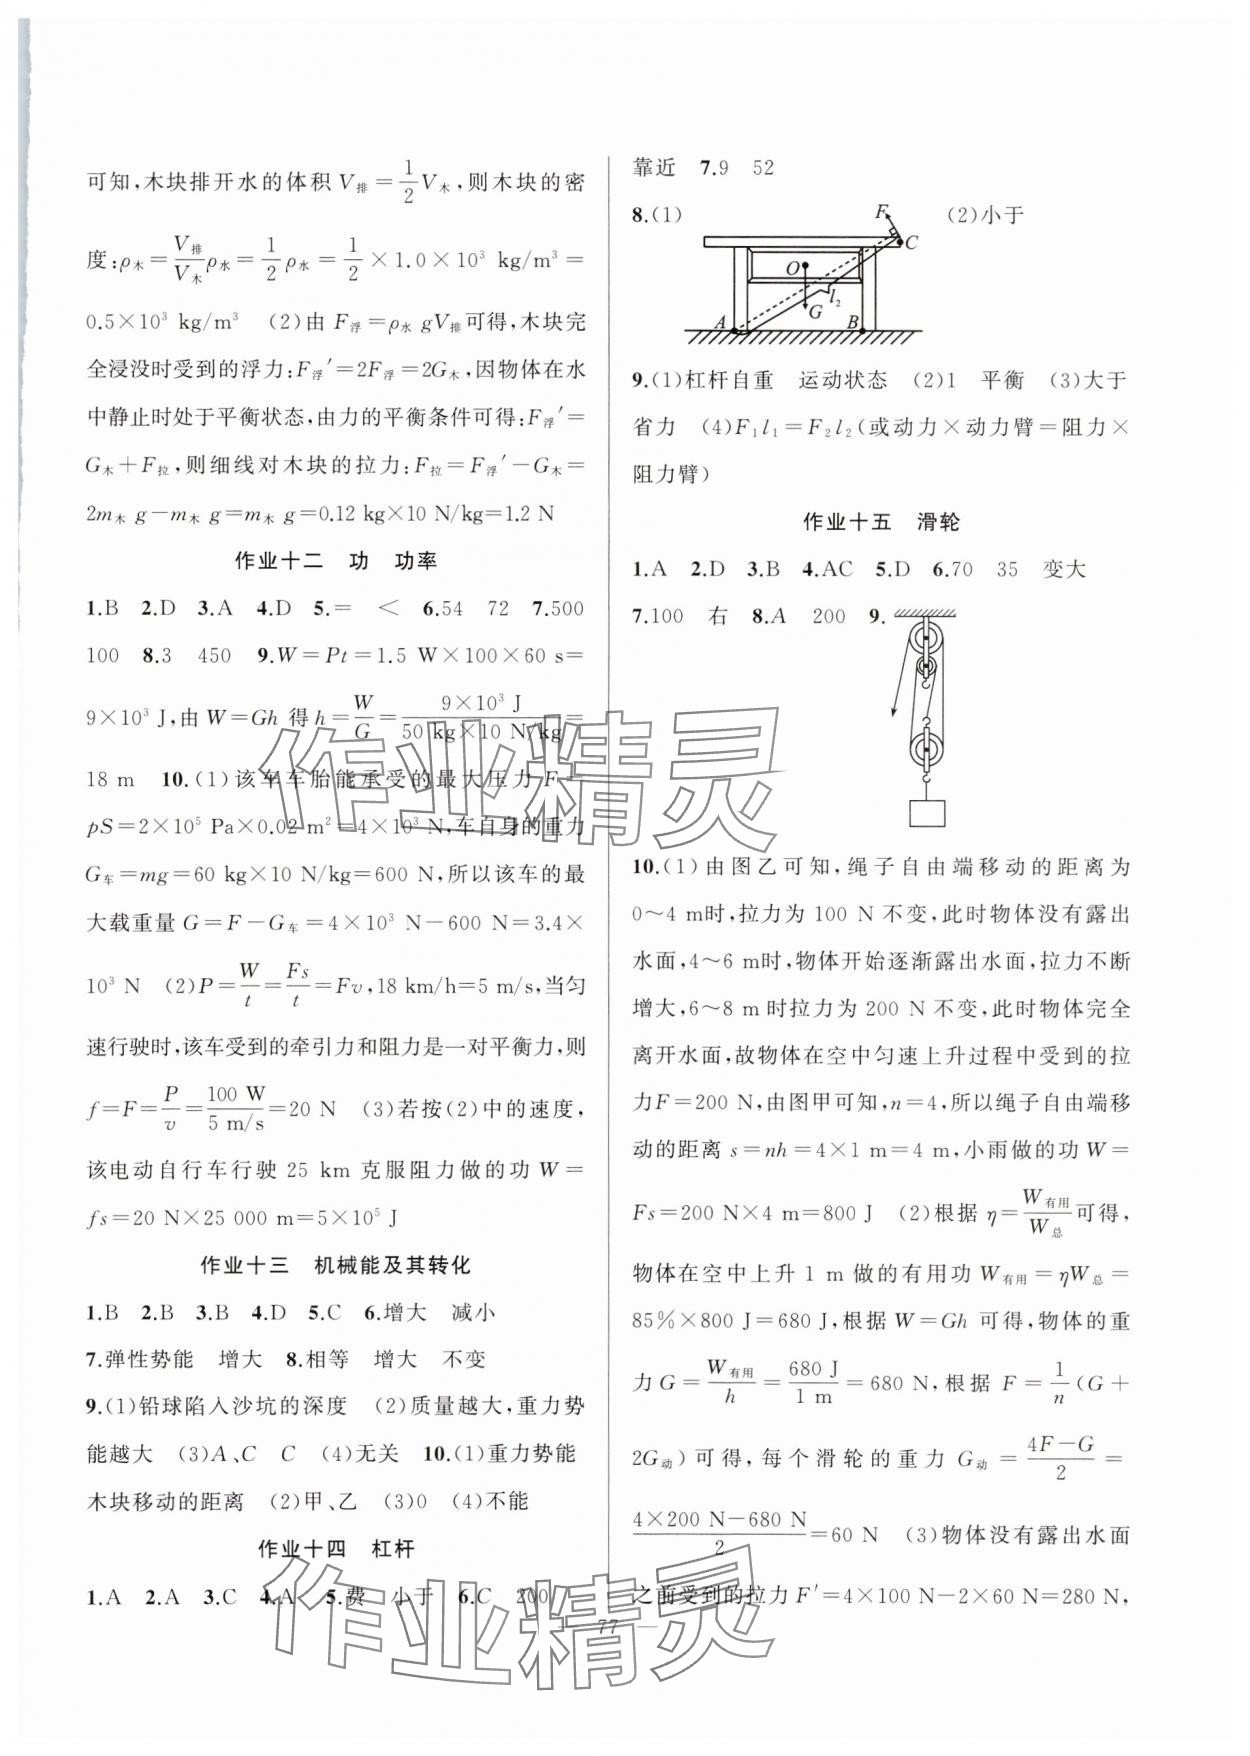 可知,木块排开水的体积 V排=1/2 V木,则木块的密
度:ρ木=V排/V木 ρ水=1/2 ρ水=1/2×1.0×10³ kg/m³=
0.5×10³ kg/m³ (2)由 F浮=ρ水 gV排可得,木块完
全浸没时受到的浮力:F浮′=2F浮=2G木,因物体在水
中静止时处于平衡状态,由力的平衡条件可得:F浮′=
G木+F拉,则细线对木块的拉力:F拉=F浮′-G木=
2m木 g-m木 g=m木 g=0.12 kg×10 N/kg=1.2 N
作业十二 功 功率
1.B 2.D 3.A 4.D 5.= < 6.54 72 7.500
100 8.3 450 9.W=Pt=1.5 W×100×60 s=
9×10³ J,由 W=Gh 得 h=W/G=9×10³ J/50 kg×10 N/kg=
18 m 10.(1)该车车胎能承受的最大压力 F=
pS=2×10⁵ Pa×0.02 m²=4×10³ N,车自身的重力
G车=mg=60 kg×10 N/kg=600 N,所以该车的最
大载重量 G=F-G车=4×10³ N-600 N=3.4×
10³ N (2)P=W/t=Fs/t=Fv,18 km/h=5 m/s,当匀
速行驶时,该车受到的牵引力和阻力是一对平衡力,则
f=F=P/v=100 W/5 m/s=20 N (3)若按(2)中的速度,
该电动自行车行驶 25 km 克服阻力做的功 W=
fs=20 N×25 000 m=5×10⁵ J
作业十三 机械能及其转化
1.B 2.B 3.B 4.D 5.C 6.增大 减小
7.弹性势能 增大 8.相等 增大 不变
9.(1)铅球陷入沙坑的深度 (2)质量越大,重力势
能越大 (3)A、C C (4)无关 10.(1)重力势能
木块移动的距离 (2)甲、乙 (3)0 (4)不能
作业十四 杠杆
1.A 2.A 3.C 4.A 5.费 小于 6.C 200
靠近 7.9 52
8.(1) (2)小于
F
C
O
l2
G
A
B
9.(1)杠杆自重 运动状态 (2)1 平衡 (3)大于
省力 (4)F₁l₁=F₂l₂(或动力×动力臂=阻力×
阻力臂)
作业十五 滑轮
1.A 2.D 3.B 4.AC 5.D 6.70 35 变大
7.100 右 8.A 200 9.
10.(1)由图乙可知,绳子自由端移动的距离为
0~4 m时,拉力为 100 N 不变,此时物体没有露出
水面,4~6 m时,物体开始逐渐露出水面,拉力不断
增大,6~8 m 时拉力为 200 N不变,此时物体完全
离开水面,故物体在空中匀速上升过程中受到的拉
力F=200 N,由图甲可知,n=4,所以绳子自由端移
动的距离 s=nh=4×1 m=4 m,小雨做的功 W=
Fs=200 N×4 m=800 J (2)根据 η=W有用/W总可得,
物体在空中上升 1 m 做的有用功 W有用=ηW总=
85%×800 J=680 J,根据 W=Gh 可得,物体的重
力 G=W有用/h=680 J/1 m=680 N,根据 F=1/n(G+
2G动)可得,每个滑轮的重力 G动=4F-G/2=
4×200 N-680 N/2=60 N (3)物体没有露出水面
之前受到的拉力 F′=4×100 N-2×60 N=280 N,
77
作业精灵
作业精灵